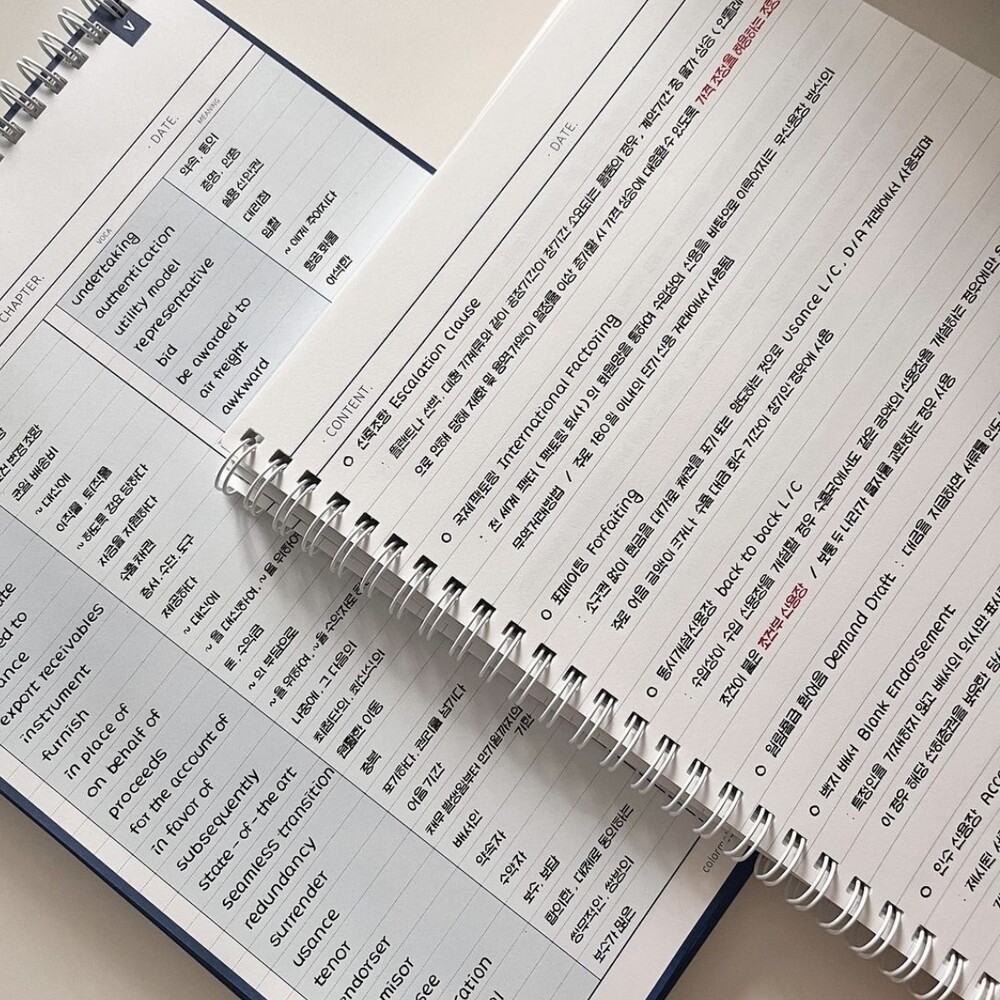 V
DATE.
CHAPTER.
VOCA
MEANING
undertaking
약속, 동의
authentication
증명, 인증
utility model
실용신안권
representative
대리점
bid
입찰
be awarded to
~에게 주어지다
air freight
항공화물
awkward
어색한
~ 대신에
이직률 퇴직률
~ 하도록 강요 당하다
자금을 지원하다
export receivables
수출채권
instrument
증서, 수단, 도구
furnish
제공하다
in place of
~ 대신에
on behalf of
~ 을 대신하여, ~을 위하여
proceeds
돈, 수익금
for the account of
~ 의 부담으로
in favor of
subsequently
나중에, 그 다음의
state-of-the art
최첨단의 최신식의
seamless transition
원활한 이동
redundancy
중복
surrender
포기하다, 권리를 넘기다
usance
어음 기간
tenor
배서인
약속자
수익자
보수, 보답
쌍무적인, 쌍방의
보수가 많은
DATE.
CONTENT.
신축조항 Escalation Clause
: 플랜트나 선박, 대형 기계류와 같이 공장기간이 장기간 소요되는 물품의 경우, 계약기간 중 물가 상승
으로 인해 당해 재화 및 용역가액이 일정률 이상 증가할 시 가격 상승에 대응할 수 있도록 가격 조정을 허용하는
국제팩토링 International Factoring
: 전 세계 팩터 ( 팩토링 회사 ) 의 회원망을 통하여 수입상의 신용을 바탕으로 이루어지는 무신용장 방식의
무역거래방법 / 주로 180일 이내의 단기신용 거래에서 사용됨
포페이팅 Forfaiting
: 소구권 없이 현금을 대가로 채권을 포기 또는 양도하는 것으로 Usance L/C, D/A 거래에서 사용되며
주로 어음 금액이 크거나 수출 대금 회수 기간이 장기인 경우에 사용
동시개설신용장 back to back L/C
: 수입상이 수입 신용장을 개설할 경우 수출국에서도 같은 금액의 신용장을 개설하는 경우에만
조건이 붙은 조건부 신용장 / 보통 두 나라가 물자를 교환하는 경우 사용
일람불급 환어음 Demand Draft :
백지 배서 Blank Endorsement
: 특정인을 기재하지 않고 배서인의 의사만
이 경우 해당 선하증권을 보유한
인수 신용장